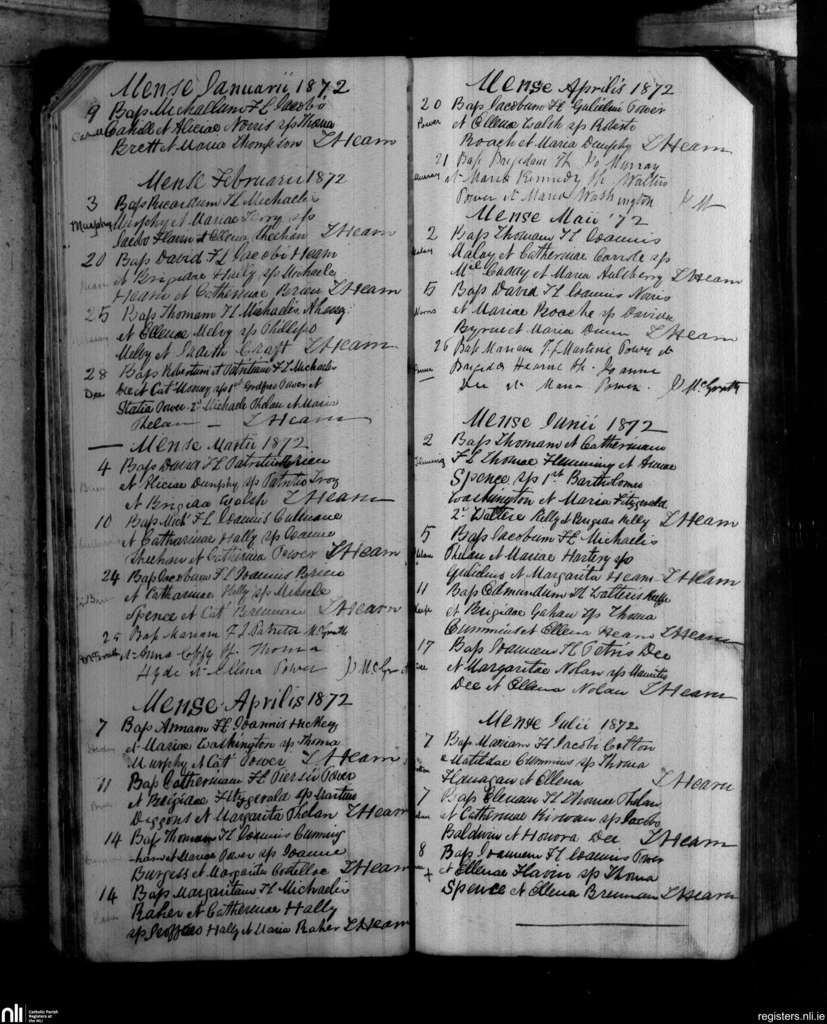 Mense Januarii 1872
9 Baps Michaelem FL Jacobi
Cahill et Aliciae Norris sps Thoma
Brett et Maria Thompson THearn
Mense Februarii 1872
3 Baps Ricardum FL Michaelis
Murphy Murphy et Mariae Terry sps
Jacobo Flavin et Ellena Sheehan THearn
20 Baps David FL Jacobi Hearn
et Brigidae Hally sps Michaele
Hearn et Catherinae Brien THearn
25 Baps Thomam FL Michaelis Ahearn
et Ellenae Melvy sps Phillippo
Melvy et Judith Craft THearn
28 Baps Robertum et Patritium FL Michaelis
Dee Dee et Cat Mooney sps 1st Galfrus Power et
Statia Power 2d Michaele Phelan et Maria
Phelan - THearn
Mense Martii 1872
4 Baps David FL Patritii Brien
et Aliciae Dunphy sps Patritio Troy
et Brigida Walsh THearn
10 Baps Mich FL Joannis Cullinane
et Catharinae Hally sps Joanne
Sheehan et Catherina Power THearn
24 Baps Jacobum FL Joannis Brien
et Catharinae Kelly sps Michaele
Spence et Cat Brennan THearn
25 Baps Mariam FJ Patritii McGrath
McGrath et Anna Coffy Sp. Thoma
Hyde et Ellena Power J McGr
Mense Aprilis 1872
7 Baps Annam FL Joannis Hickey
et Mariae Washington sps Thoma
Murphy et Cat Power THearn
11 Baps Catherinam FL Piersii Power
et Brigidae Fitzgerald sps Martino
Diggons et Margarita Phelan THearn
14 Baps Thomam FL Joannis Cunning
ham et Mariae Power sps Joanne
Burgess et Margarita Costelloe THearn
14 Baps Margaritam FL Michaelis
Raher et Catherinae Hally
sps Hally et Maria Raher THearn
Mense Aprilis 1872
20 Baps Jacobum FL Galielmi Power
Power et Ellenae Walsh sps Roberto
Roach et Maria Dunphy THearn
21 Baps Brigidam Murray
et Maria Kennedy Walter
Power et Maria Washington
Mense Maii '72
2 Baps Thomam FL Joannis
Malay et Catherinae Carrole sps
Mcl Caddy et Maria Aulsberry THearn
5 Baps David FL Joannis Norris
Norris et Mariae Roache sps Davide
Byrne et Maria Dunn THearn
26 Baps Mariam FJ Martini Power et
Brigida Hearne Sp. Joanne
Dee et Maria Power. J McGrath
Mense Junii 1872
2 Baps Thomam et Catherinam
Flemming FL Thomae Flemming et Annae
Spence sps 1st Bartholomeo
Washington et Maria Fitzgerald
2d Waltero Kelly et Brigida Kelly THearn
5 Baps Jacobum FL Michaelis
Phelan et Mariae Hartery sps
Gulielmo et Margarita Hearn THearn
11 Baps Edmundum FL Walteris Keefe
et Brigidae Gahan sps Thoma
Cummins et Ellena Hearn THearn
17 Baps Joannem FL Petris Dee
Dee et Margaritae Nolan sps Mauritio
Dee et Ellena Nolan THearn
Mense Julii 1872
7 Baps Mariam FL Jacobi Cotton
et Matildae Cummins sps Thoma
Flanagan et Ellena THearn
7 Baps Elenam FL Thomae Phelan
et Catherinae Kirwan sps Jacobo
Baldwin et Honora Dee THearn
8 Baps Joannem FL Joannis Power
+ et Ellenae Flavin sps Thoma
Spence et Ellena Brennan THearn
nli
Catholic Parish
Registers at
the NLI
registers.nli.ie